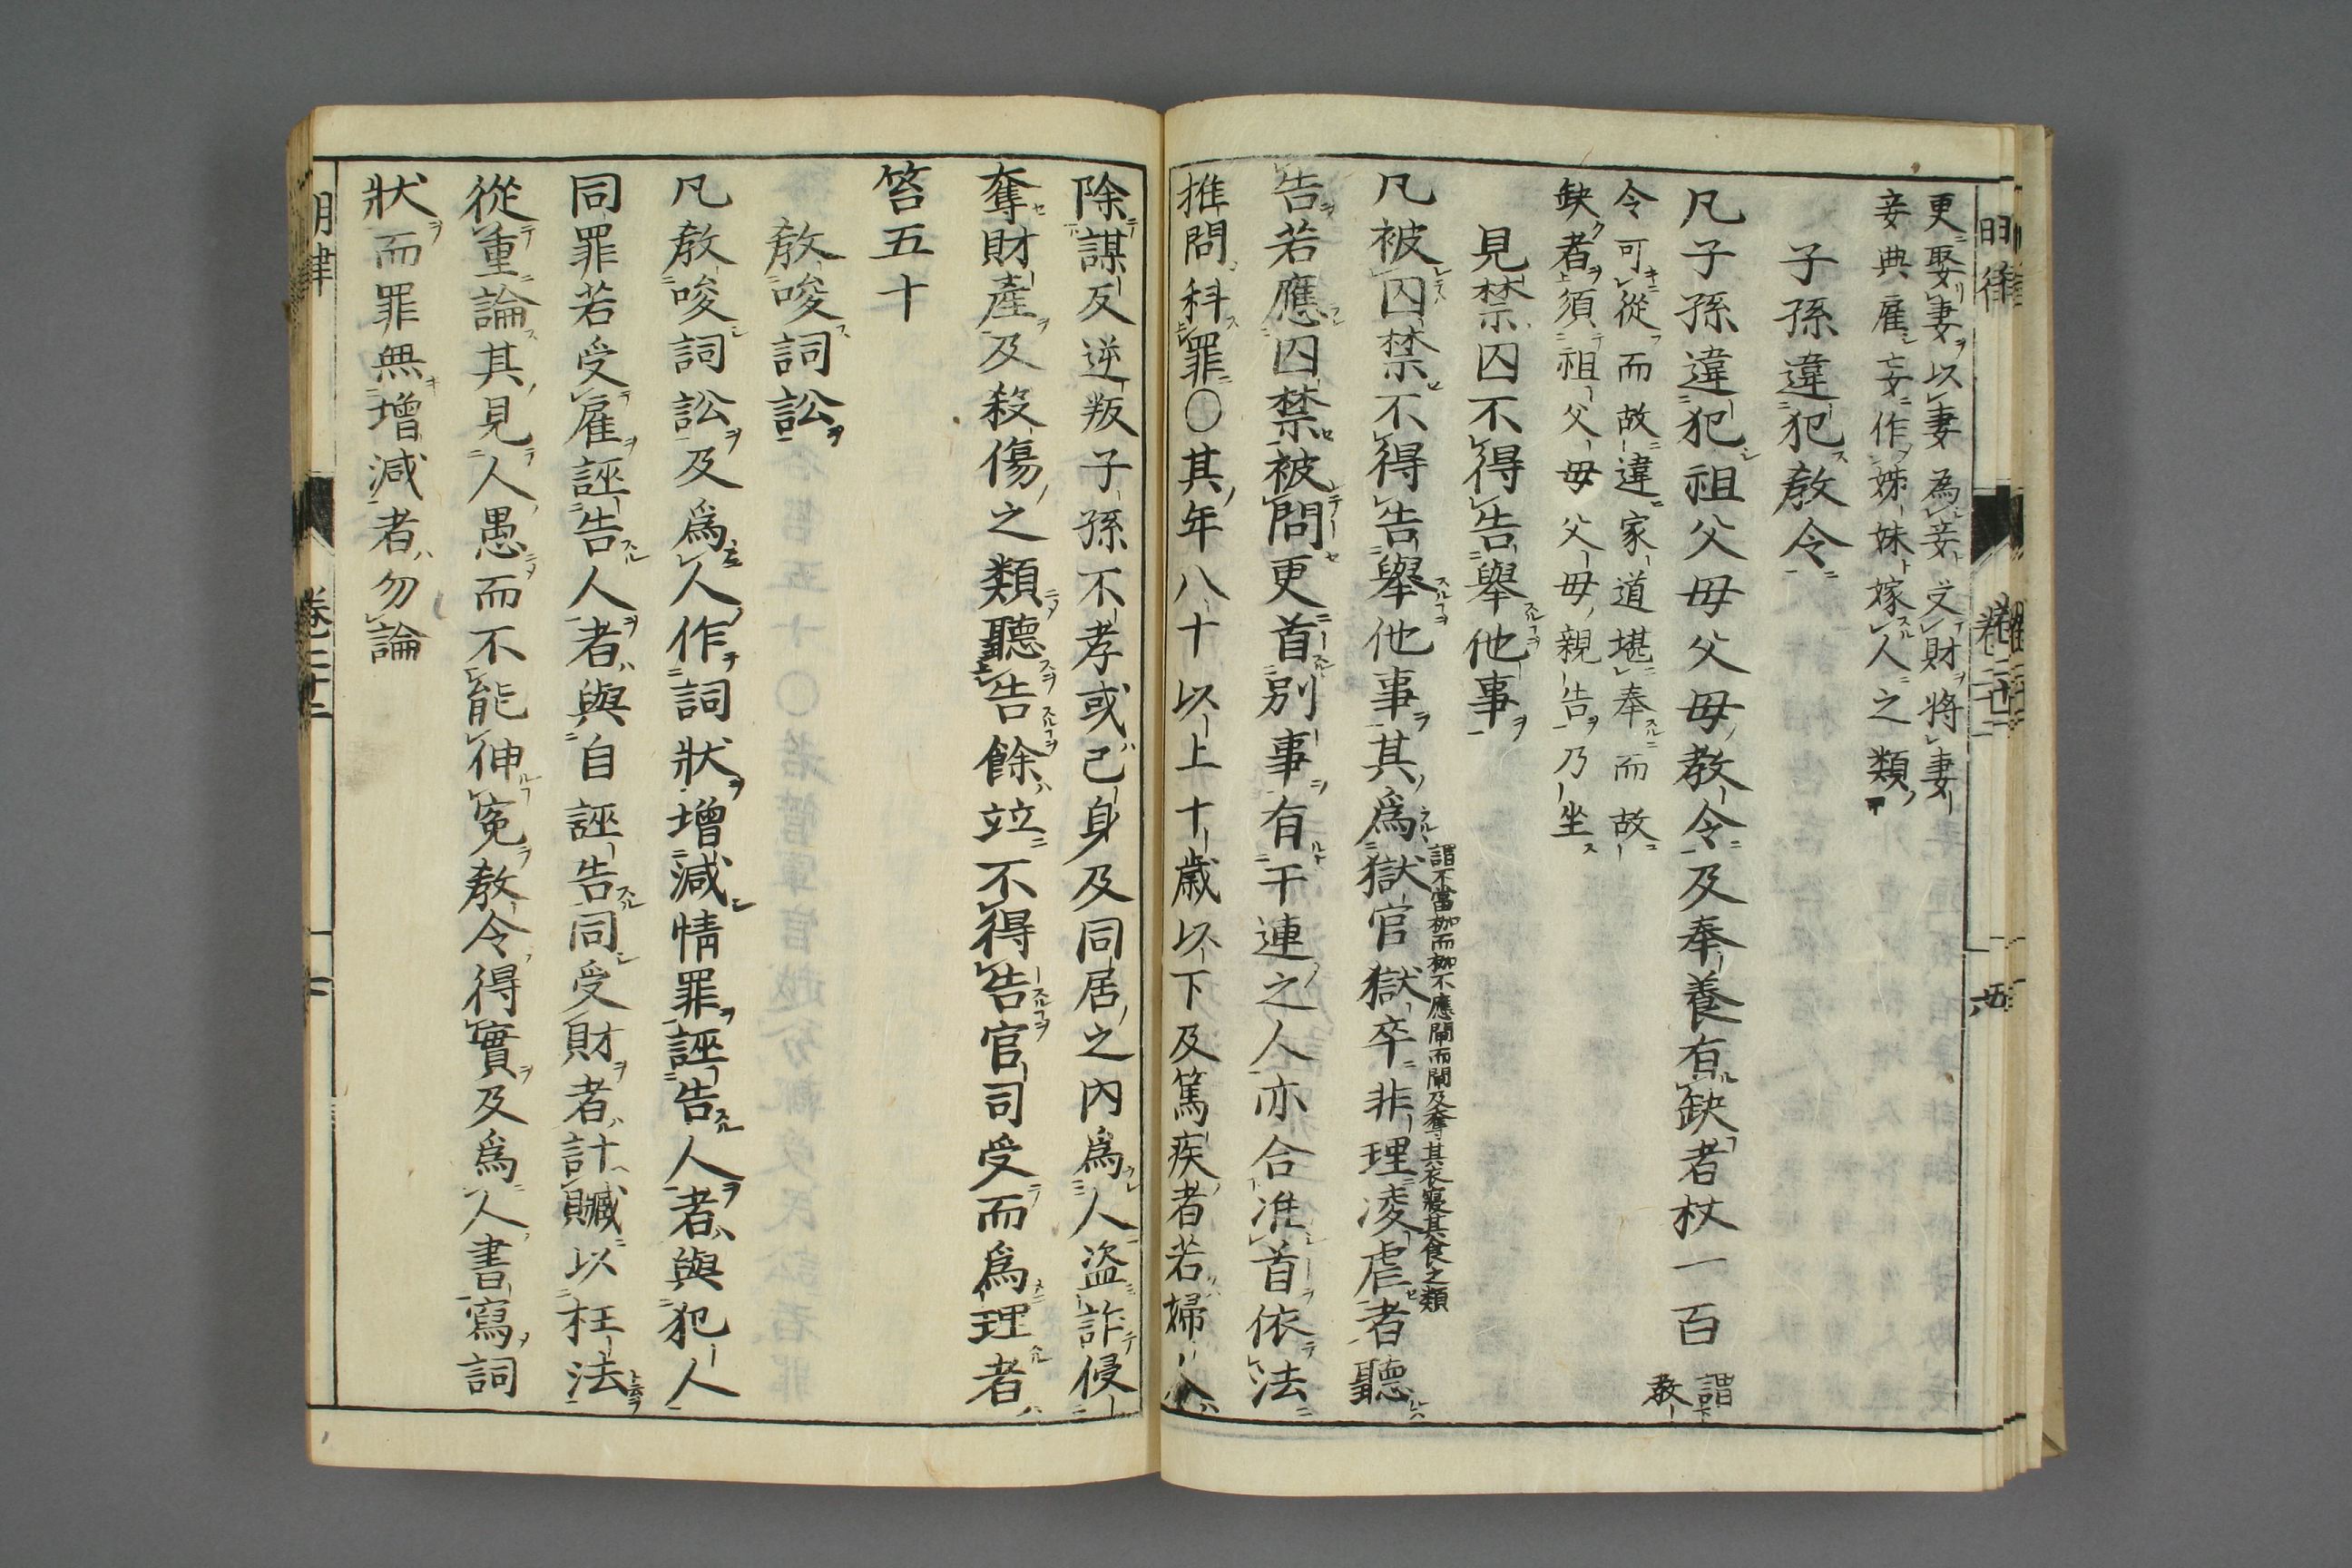 更娶妻以妻為妾受財將妻
妾典雇妄作姊妹嫁人之類
子孫違犯教令
凡子孫違犯祖父母父母教令及奉養有缺者杖一百謂教
令可從而故違家道堪奉而故
缺者須祖父母父母親告乃坐
見禁囚不得告舉他事
凡被囚禁不得告舉他事其爲獄官獄卒非理凌虐者聽
謂不當枷而枷不應閘而閘及奪其衣寢其食之類
告若應囚禁被問更首別事有干連之人亦合准首依法
推問科罪○其年八十以上十歲以下及篤疾者若婦人
除謀反逆叛子孫不孝或己身及同居之內爲人盜詐侵
奪財產及殺傷之類聽告餘竝不得告官司受而爲理者
笞五十
教唆詞訟
凡教唆詞訟及爲人作詞狀增減情罪誣告人者與犯人
同罪若受雇誣告人者與自誣告同受財者計贓以枉法
從重論其見人愚而不能伸冤教令得實及爲人書寫詞
狀而罪無增減者勿論
明律
卷二十二